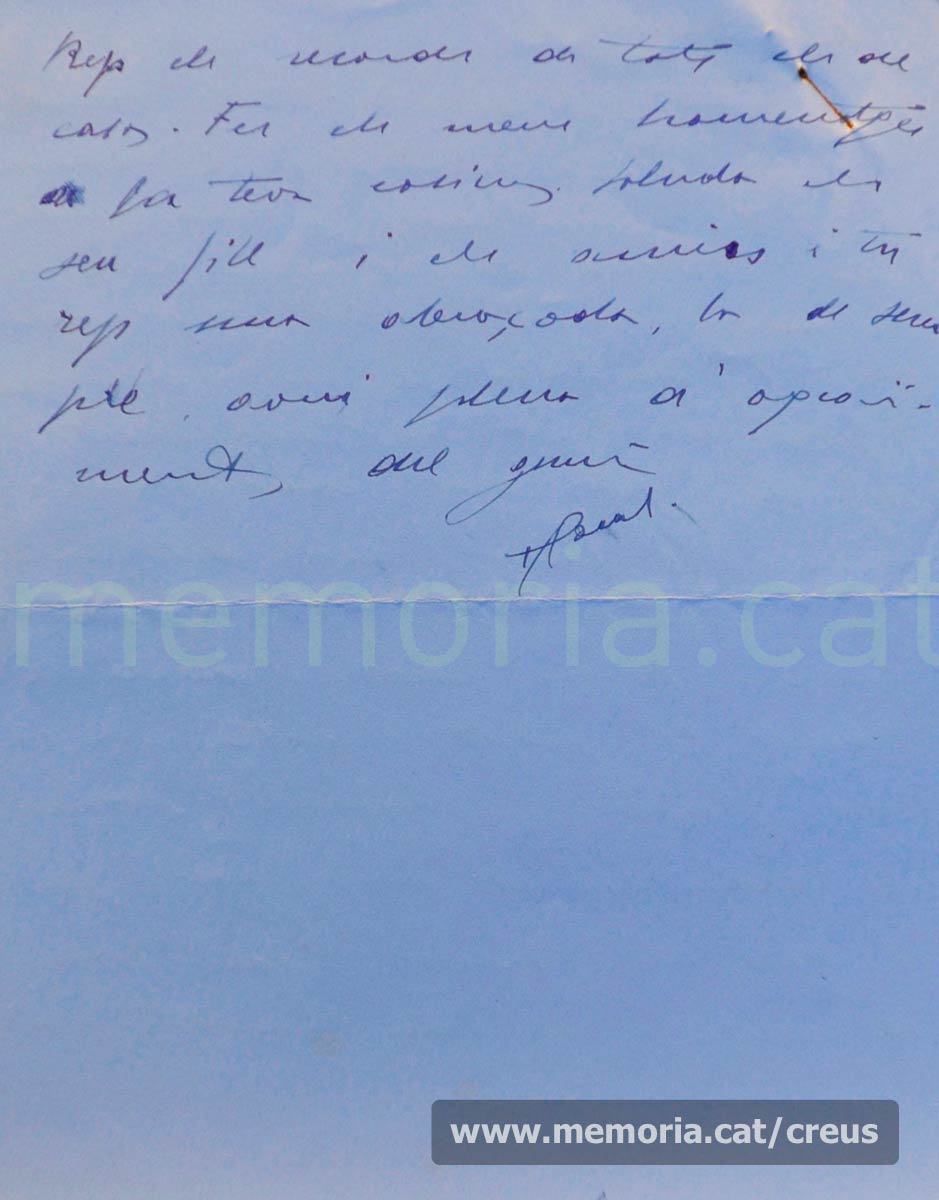 Rep els records de tots els de
casa. Fes els meus homenatges
a la teva cosina, saluda els
seu fill i els amics i tú
rep una abraçada, la de sem
pre, avui plena d'agraï-
ment, del
Pascual.
memoria.cat
www.memoria.cat/creus